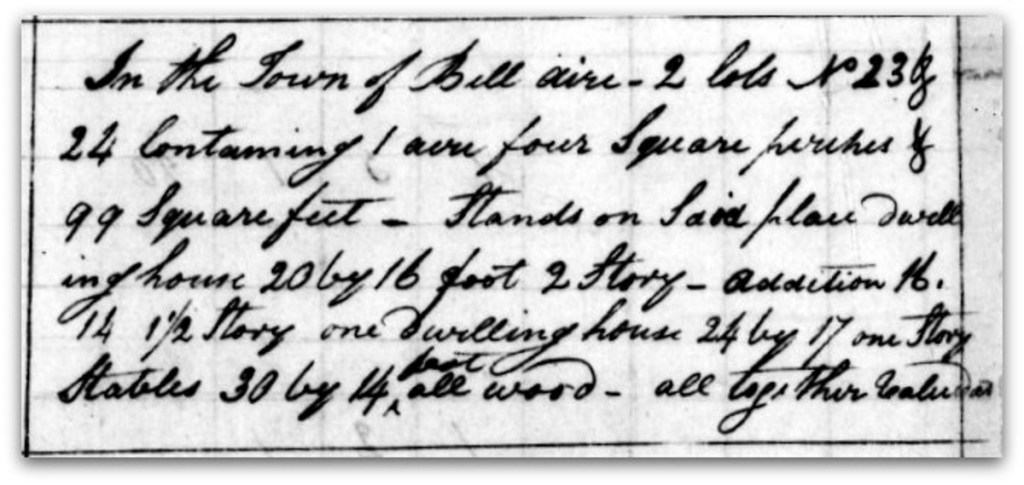 In the Town of Bell aire - 2 lots No 23 &
24 Containing 1 acre four Square perches &
99 Square feet - Stands on Said place dwell
ing house 20 by 16 foot 2 Story - addition 16.
14 1 1/2 Story one dwelling house 24 by 17 one Story
feet
Stables 30 by 14 all wood - all together Valued at